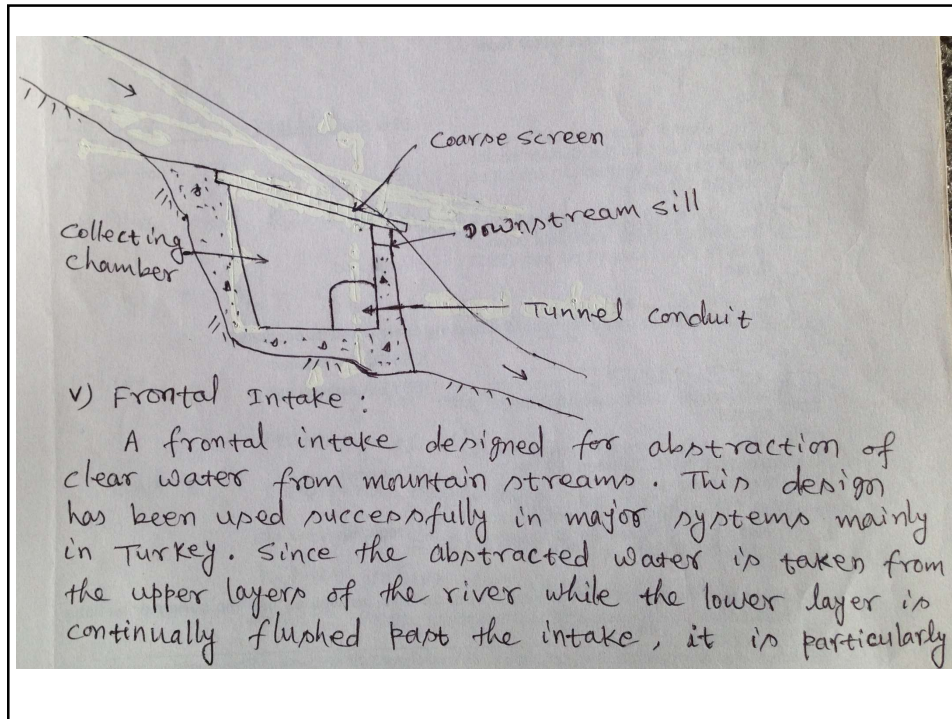 Coarse screen
Downstream sill
Collecting
chamber
Tunnel conduit
v) Frontal Intake :
A frontal intake designed for abstraction of
clear water from mountain streams. This design
has been used successfully in major systems mainly
in Turkey. Since the abstracted water is taken from
the upper layers of the river while the lower layer is
continually flushed past the intake, it is particularly